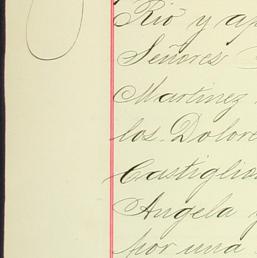 Rio y ap
Señores
Martinez
los Dolore
Castiglio
Angela y
por una